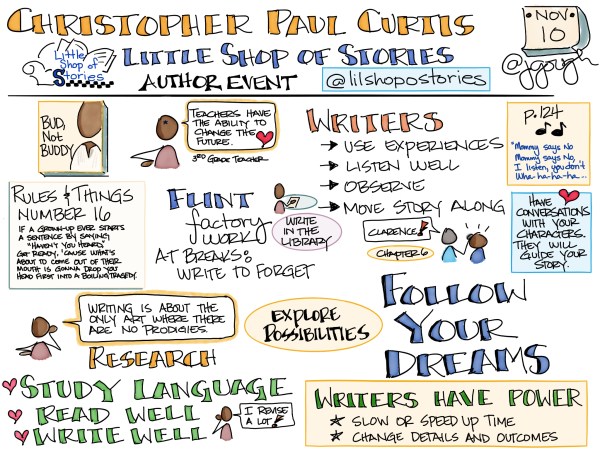 CHRISTOPHER PAUL CURTIS
Little Shop of Stories
LITTLE SHOP OF STORIES
AUTHOR EVENT
@lilshopostories
NOV
10
@jgough
BUD,
NOT
BUDDY
TEACHERS HAVE
THE ABILITY TO
CHANGE THE
FUTURE.
3RD GRADE TEACHER
WRITERS
→ USE EXPERIENCES
→ LISTEN WELL
→ OBSERVE
→ MOVE STORY ALONG
P. 124
"Mommy says No
Mommy says No,
I listen, you don't
Wha-ha-ha-ha...
RULES & THINGS
NUMBER 16
IF A GROWN-UP EVER STARTS
A SENTENCE BY SAYING
"HAVEN'T YOU HEARD,"
GET READY, 'CAUSE WHAT'S
ABOUT TO COME OUT OF THEIR
MOUTH IS GONNA DROP YOU
HEAD FIRST INTO A BOILING TRAGEDY.
FLINT
factory
WORK
WRITE
IN THE
LIBRARY
AT BREAKS:
WRITE TO FORGET
CLARENCE!
CHAPTER 6
HAVE
CONVERSATIONS
WITH YOUR
CHARACTERS.
THEY WILL
GUIDE YOUR
STORY.
WRITING IS ABOUT THE
ONLY ART WHERE THERE
ARE NO PRODIGIES.
EXPLORE
POSSIBILITIES
FOLLOW
YOUR
DREAMS
RESEARCH
STUDY LANGUAGE
READ WELL
WRITE WELL
I REVISE
A LOT!
WRITERS HAVE POWER
★ SLOW OR SPEED UP TIME
★ CHANGE DETAILS AND OUTCOMES